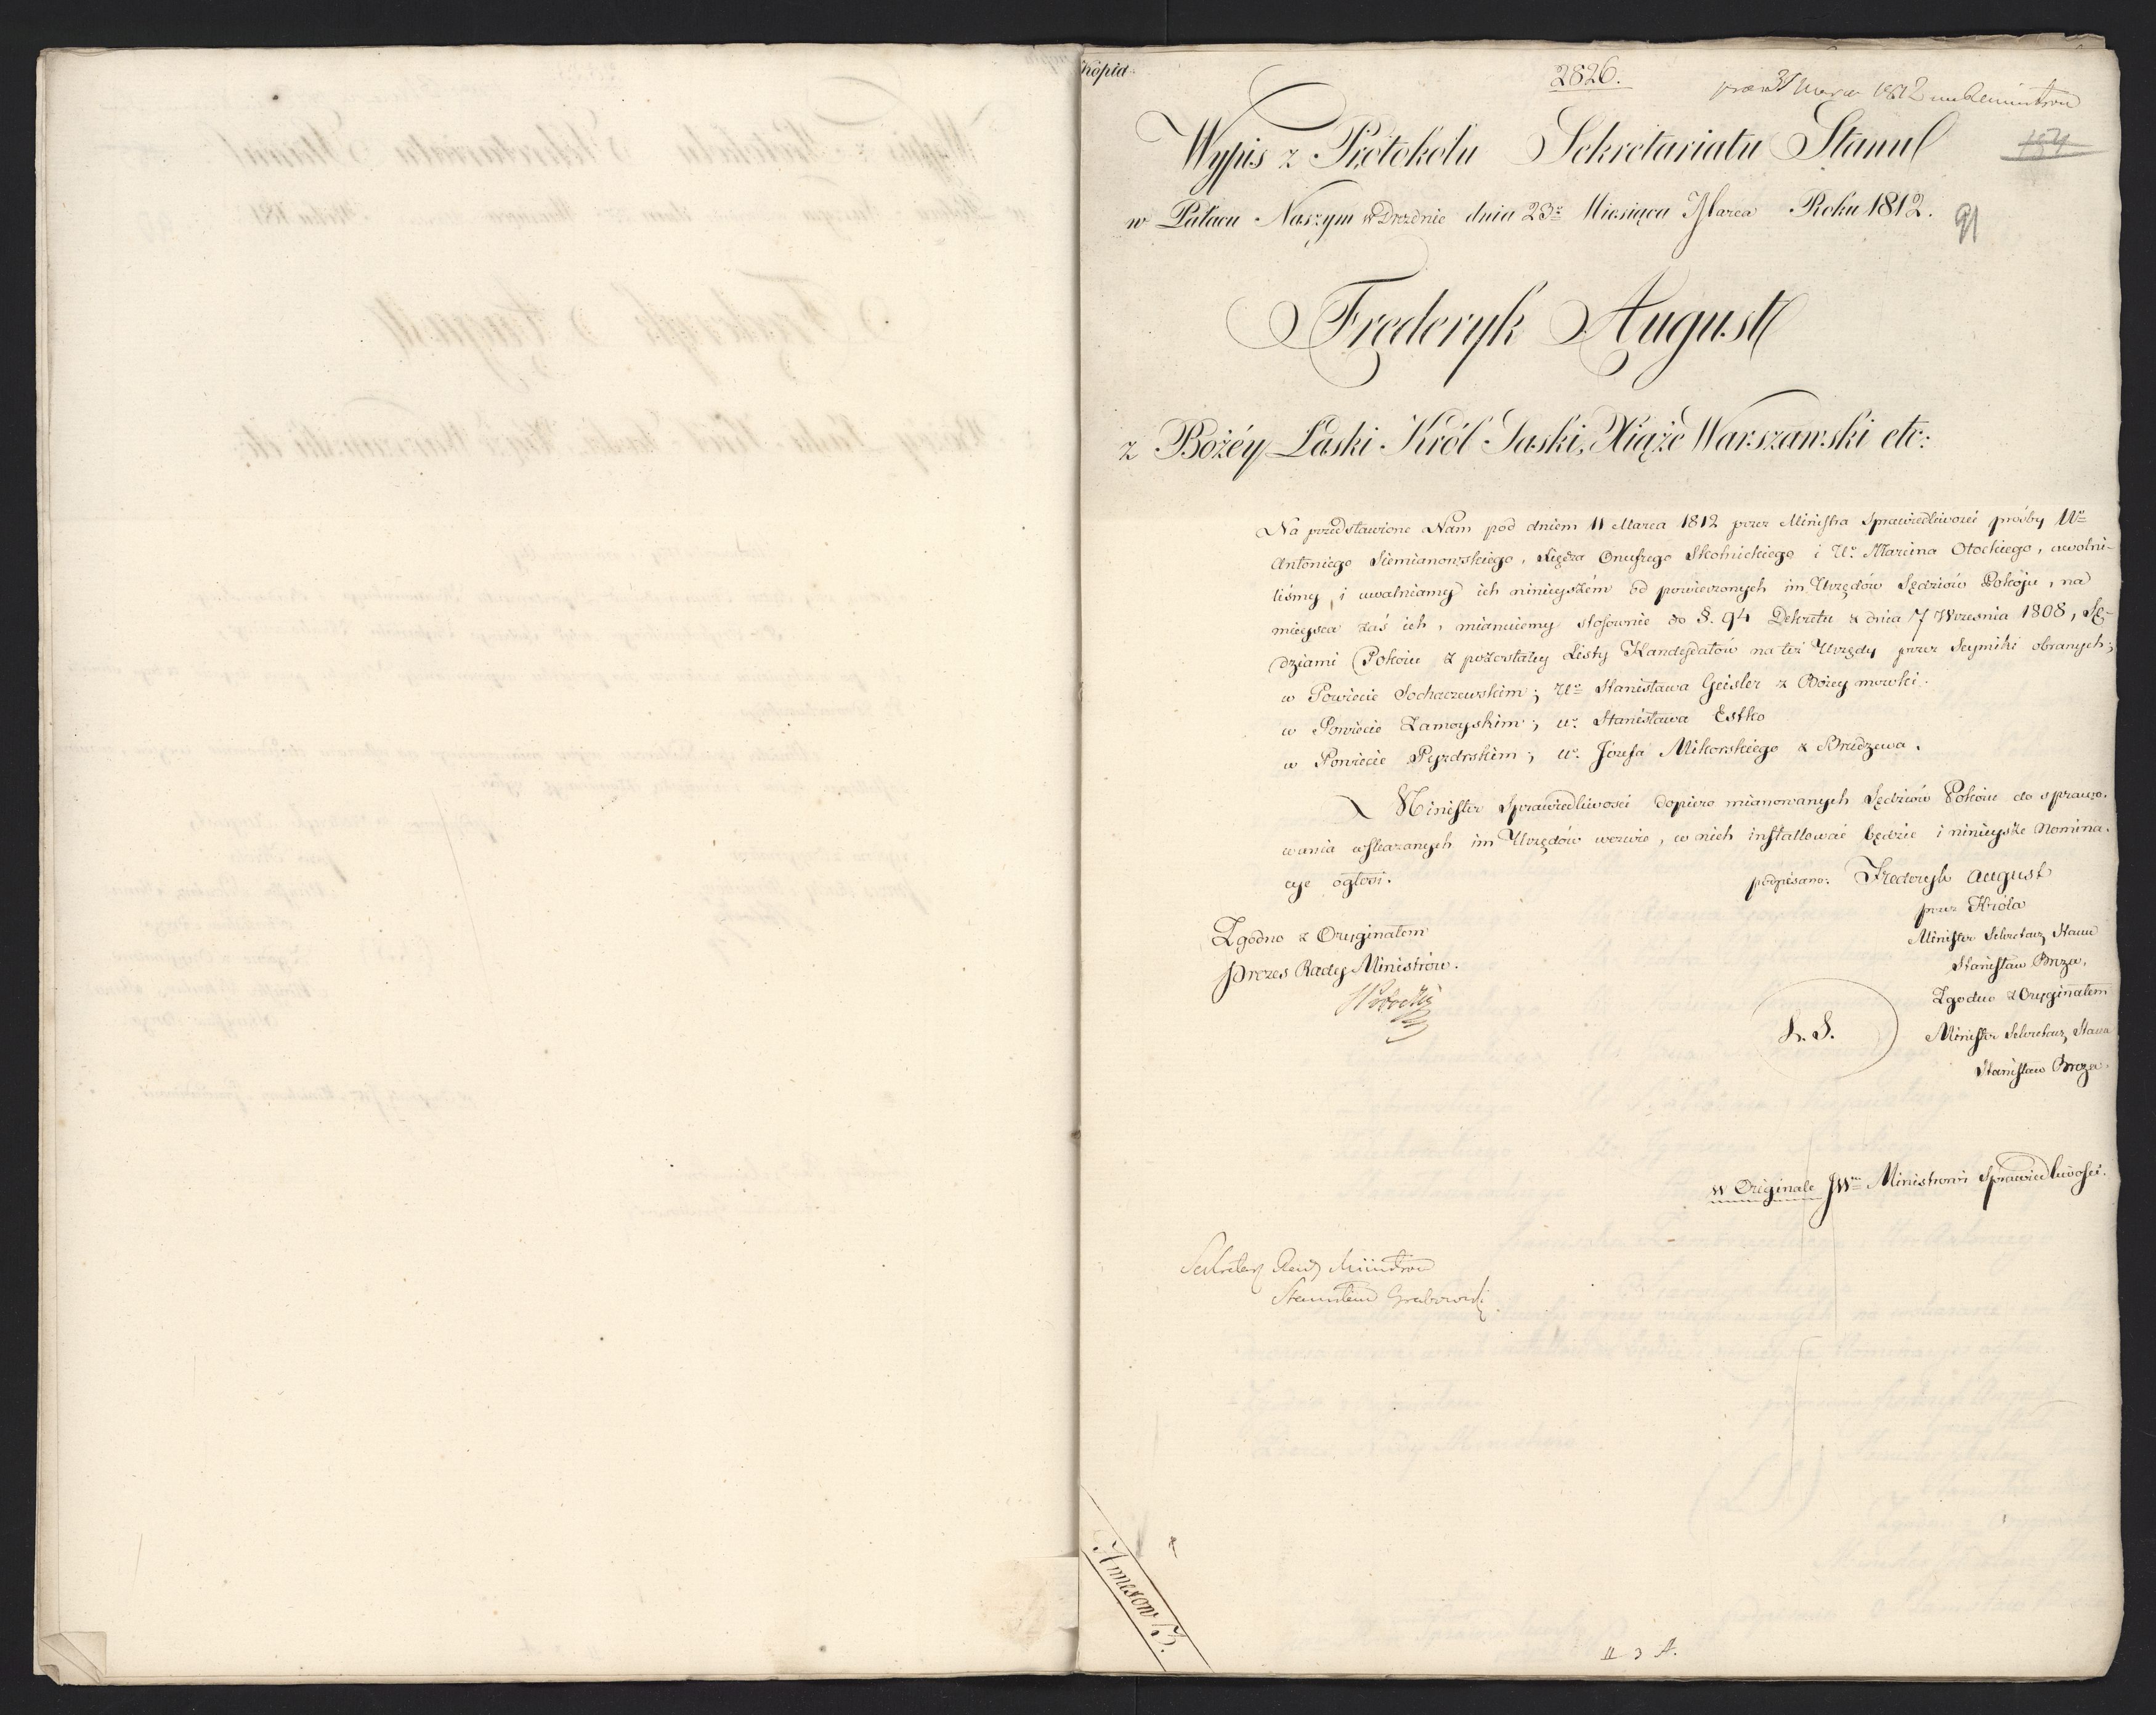 Kopia
2826.
31 Marca 1812
Wypis z Protokolu Sekretariatu Stanu
184
w Pałacu Naszym w Dreznie dnia 23º Miesiąca Marca Roku 1812.
91
Frederyk August
z Bożéy Łaski Król Saski, Xiąże Warszawski etc:
Na przedstawione Nam pod dniem 11 Marca 1812 przez Ministra Sprawiedliwości prośby Uº
Antoniego Siemianowskiego, Xiędza Onufrego Skolnickiego i Uº Marcina Otockiego, uwolni-
liśmy i uwalniamy ich ninieyszém od powierzonych im Urzędów Sędziów Pokoju, na
mieysca zaś ich, mianuiemy stosownie do §. 94 Dekretu z dnia 7 Wrzesnia 1808, Sę-
dziami Pokoiu z pozostałey Listy Kandydatów na też Urzędy przez Seymiki obranych;
w Powiecie Sochaczewskim; Uº Stanisława Geisler z Bożey mowki.
w Powiecie Zamoyskim; Uº Stanisława Estko
w Powiecie Pyzdrskim; Uº Józefa Mikorskiego z Brudzewa.
Minister Sprawiedliwości dopiero mianowanych Sędziów Pokoiu do sprawo-
wania wskazanych im Urzędów wezwie, w nich installować będzie i ninieysze Nomina-
cye ogłosi.
podpisano: Frederyk August
przez Króla
Minister Sekretarz Stanu
Stanisław Breza.
Zgodno z Oryginałem
Prezes Rady Ministrów.
Zgodno z Oryginałem
L. S.
Minister Sekretarz Stanu
Stanisław Breza.
w Originale JWmu Ministrowi Sprawiedliwości.
Sekretarz Rady Ministrow
Stanisław Grabowski
Annexow 13.